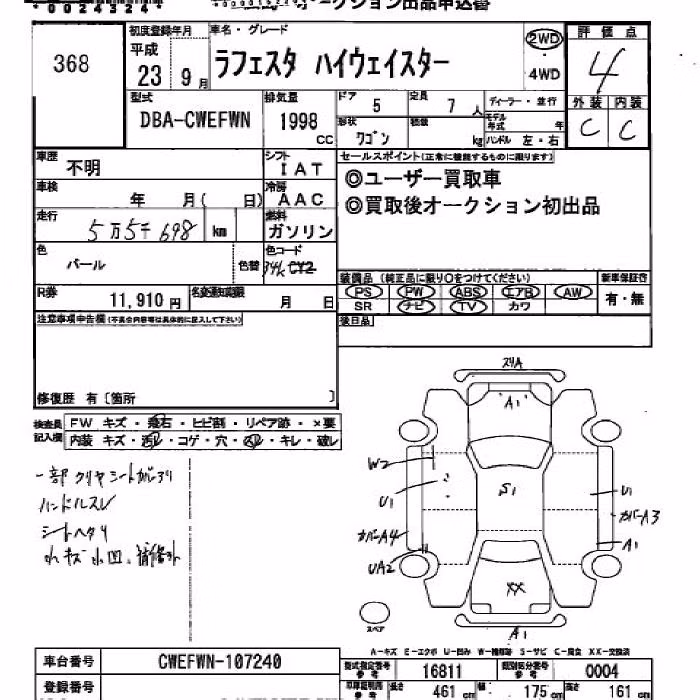 0024324
368
初度登録年月
平成
23年 9月
車名・グレード
ラフェスタ ハイウェイスター
2WD
・
4WD
評価点
4
外装 内装
C C
型式
DBA-CWEFWN
排気量
1998 cc
ドア 5
定員 7 人
形状 ワゴン
積載 kg
ディーラー・並行
モデル年式 年
ハンドル 左・右
車歴 不明
シフト IAT
セールスポイント(正常に機能するものに限ります)
◎ユーザー買取車
◎買取後オークション初出品
車検 年 月( 日)
冷房 AAC
走行 5万5千698 km
燃料 ガソリン
色 パール
色替
色コード 34K
R券 11,910 円
名変通知期限 月 日
装備品(純正品に限り○をつけてください)
新車保証書
PS PW ABS エアB AW 有・無
SR ナビ TV カワ
注意事項申告欄(不具合内容等は具体的に記入して下さい)
後日品
修復歴 有〔箇所 〕
検査員記入欄
FW キズ・飛石・ヒビ割・リペア跡・×要
内装 キズ・汚レ・コゲ・穴・スレ・キレ・破レ
ハンドルスレ
シートヘタリ
スリA
A1
W2
U1
S1
U1
カバーA4
カバーA3
UA2
A1
XX
A1
スペア
A-キズ E-エクボ U-凹み W-補修跡 S-サビ C-腐食 XX-交換済
車台番号 CWEFWN-107240
型式指定番号 参考 16811
類別区分番号 参考 0004
登録番号
長さ 461 cm 幅 175 cm 高さ 161 cm